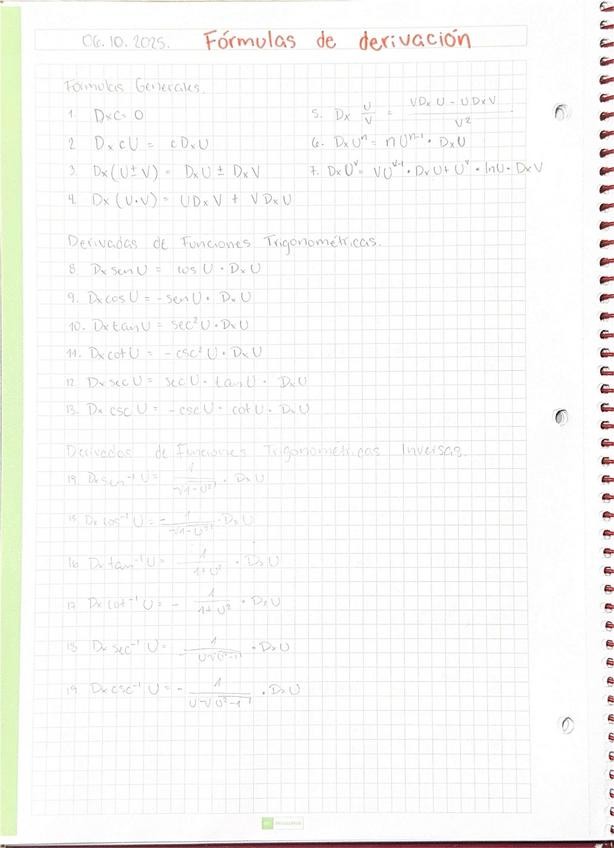 06.10.2025. Fórmulas de derivación
Formulas Generales.
1. DxC = 0
2 DxcU = cDxU
3. Dx(U±V) = DxU ± DxV
4. Dx (U·V) = UDxV + VDxU
5. Dx U/V = VDxU - UDxV / V²
6. DxUⁿ = nUⁿ⁻¹ · DxU
7. DxUᵛ = VUᵛ⁻¹ · DxU + Uᵛ · lnU · DxV
Derivadas de Funciones Trigonométricas.
8. DxsenU = cosU · DxU
9. DxcosU = -senU · DxU
10. DxtanU = sec²U · DxU
11. DxcotU = -csc²U · DxU
12 DxsecU = secU · tanU · DxU
13. DxcscU = -cscU · cotU · DxU
Derivadas de Funciones Trigonométricas Inversas.
Dxsen⁻¹U = 1/√1-U² · DxU
15 Dxcos⁻¹U = - 1/√1-U² · DxU
16 Dxtan⁻¹U = 1/1+U² · DxU
17 Dxcot⁻¹U = - 1/1+U² · DxU
18 Dxsec⁻¹U = 1/U√U²-1 · DxU
19 Dxcsc⁻¹U = - 1/U√U²-1 · DxU